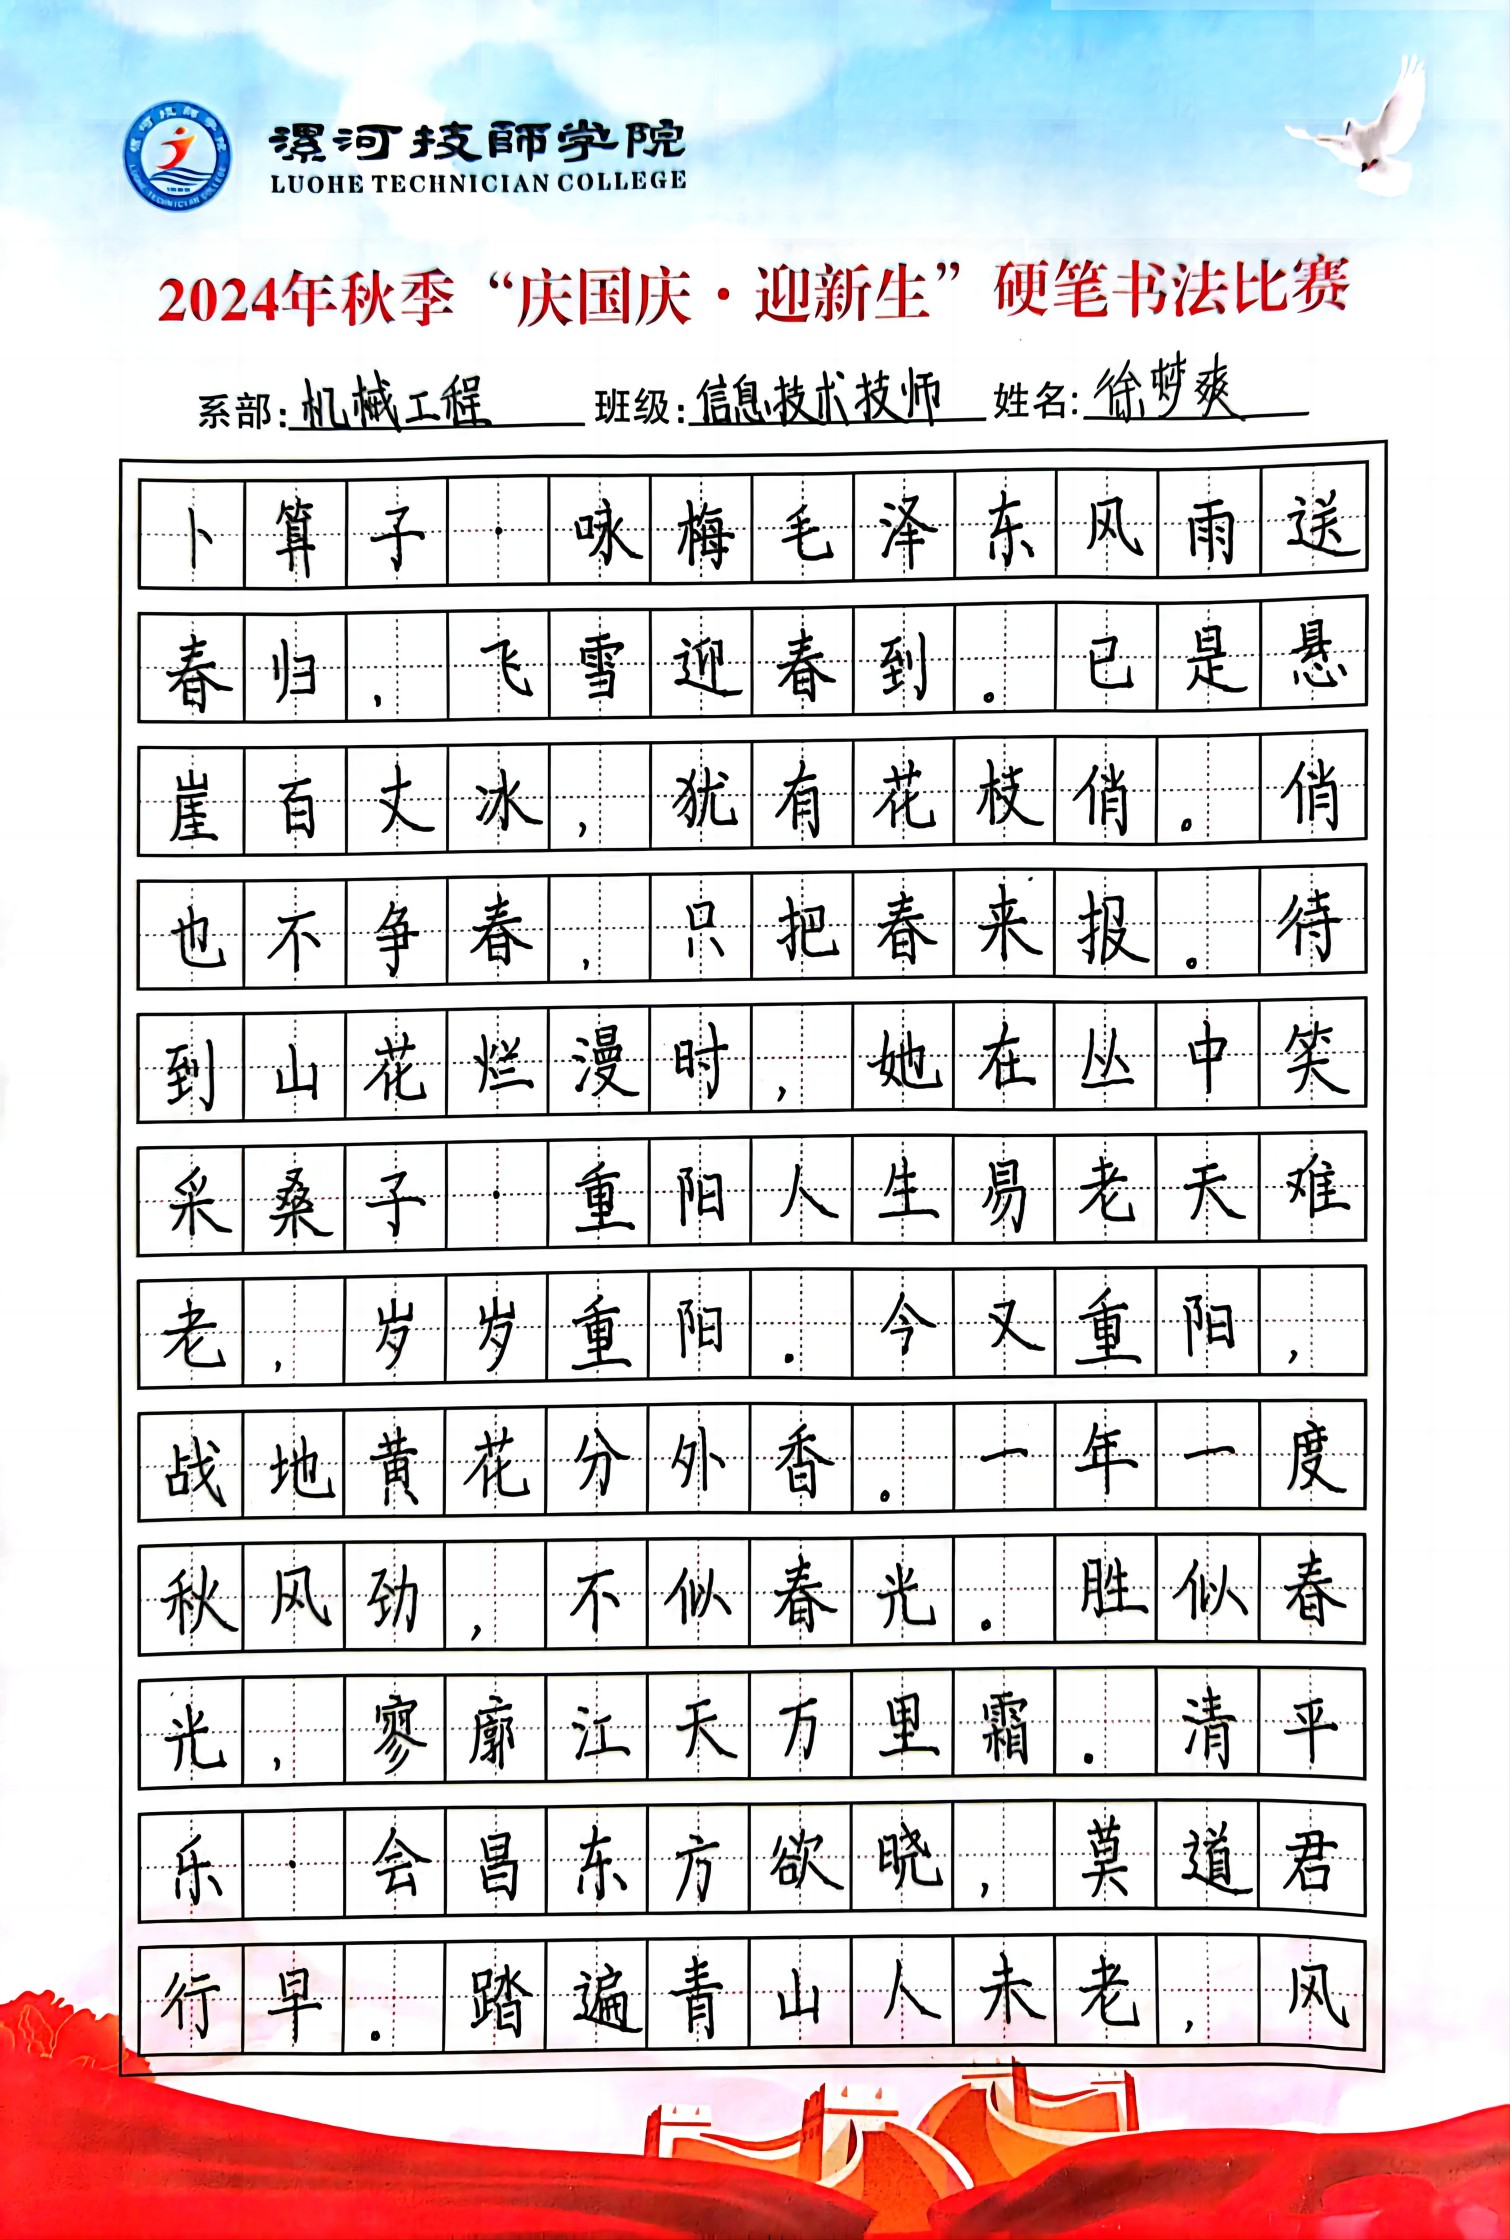 漯河技師学院
LUOHE TECHNICIAN COLLEGE
2024年秋季“庆国庆·迎新生”硬笔书法比赛
系部:机械工程 班级:信息技术技师 姓名:徐梦爽
卜算子·咏梅毛泽东风雨送
春归，飞雪迎春到。已是悬
崖百丈冰，犹有花枝俏。俏
也不争春，只把春来报。待
到山花烂漫时，她在丛中笑
采桑子·重阳人生易老天难
老，岁岁重阳.今又重阳，
战地黄花分外香。一年一度
秋风劲，不似春光。胜似春
光，寥廓江天万里霜.清平
乐·会昌东方欲晓，莫道君
行早.踏遍青山人未老，风